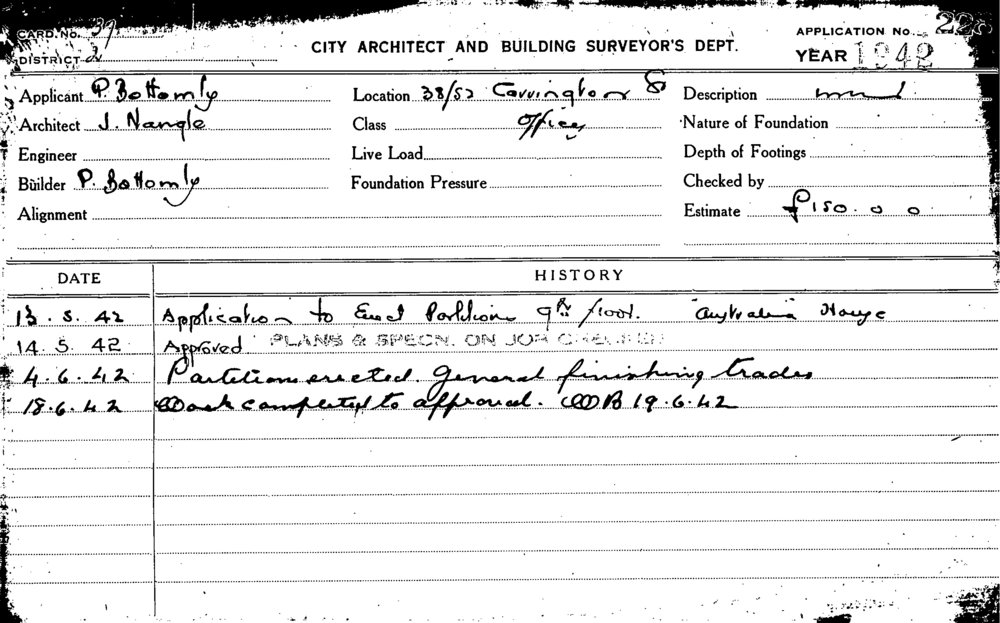 CARD. No. 39 APPLICATION No.
DISTRICT 2 CITY ARCHITECT AND BUILDING SURVEYOR'S DEPT. YEAR 1942
Applicant P. Bottomly Location 38/52 Carrington St Description
Architect J. Nangle Class Offices Nature of Foundation
Engineer Live Load Depth of Footings
Builder P. Bottomly Foundation Pressure Checked by
Alignment Estimate £150. 0 0
DATE HISTORY
13. 5. 42 Application to Erect Partitions 9th floor. "Australia" House
14. 5. 42 Approved PLANS & SPECN. ON JOB CHECKED
4. 6. 42 Partitions erected. General finishing trades
18. 6. 42 Work completed to approval. WDB 19. 6. 42